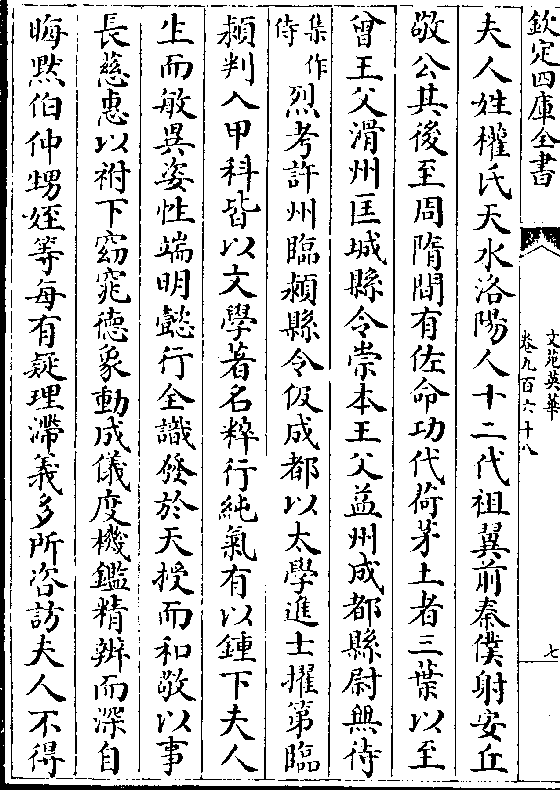 欽定四庫全書
文苑英華
卷九百六十八
七
夫人姓權氏天水洛陽人十二代祖翼前秦僕射安丘
敬公其後至周隋間有佐命功代荷茅土者三葉以至
曾王父滑州匡城縣令崇本王父益州成都縣尉無待
集作
侍
烈考許州臨潁縣令佽成都以太學進士擢第臨
潁判入甲科皆以文學著名粹行純氣有以鍾下夫人
生而敏異姿性端明懿行全識發於天授而和敬以事
長慈惠以祔下窈窕德象動成儀度機鑑精辨而深自
晦黙伯仲甥姪等每有疑理滯義多所咨訪夫人不得